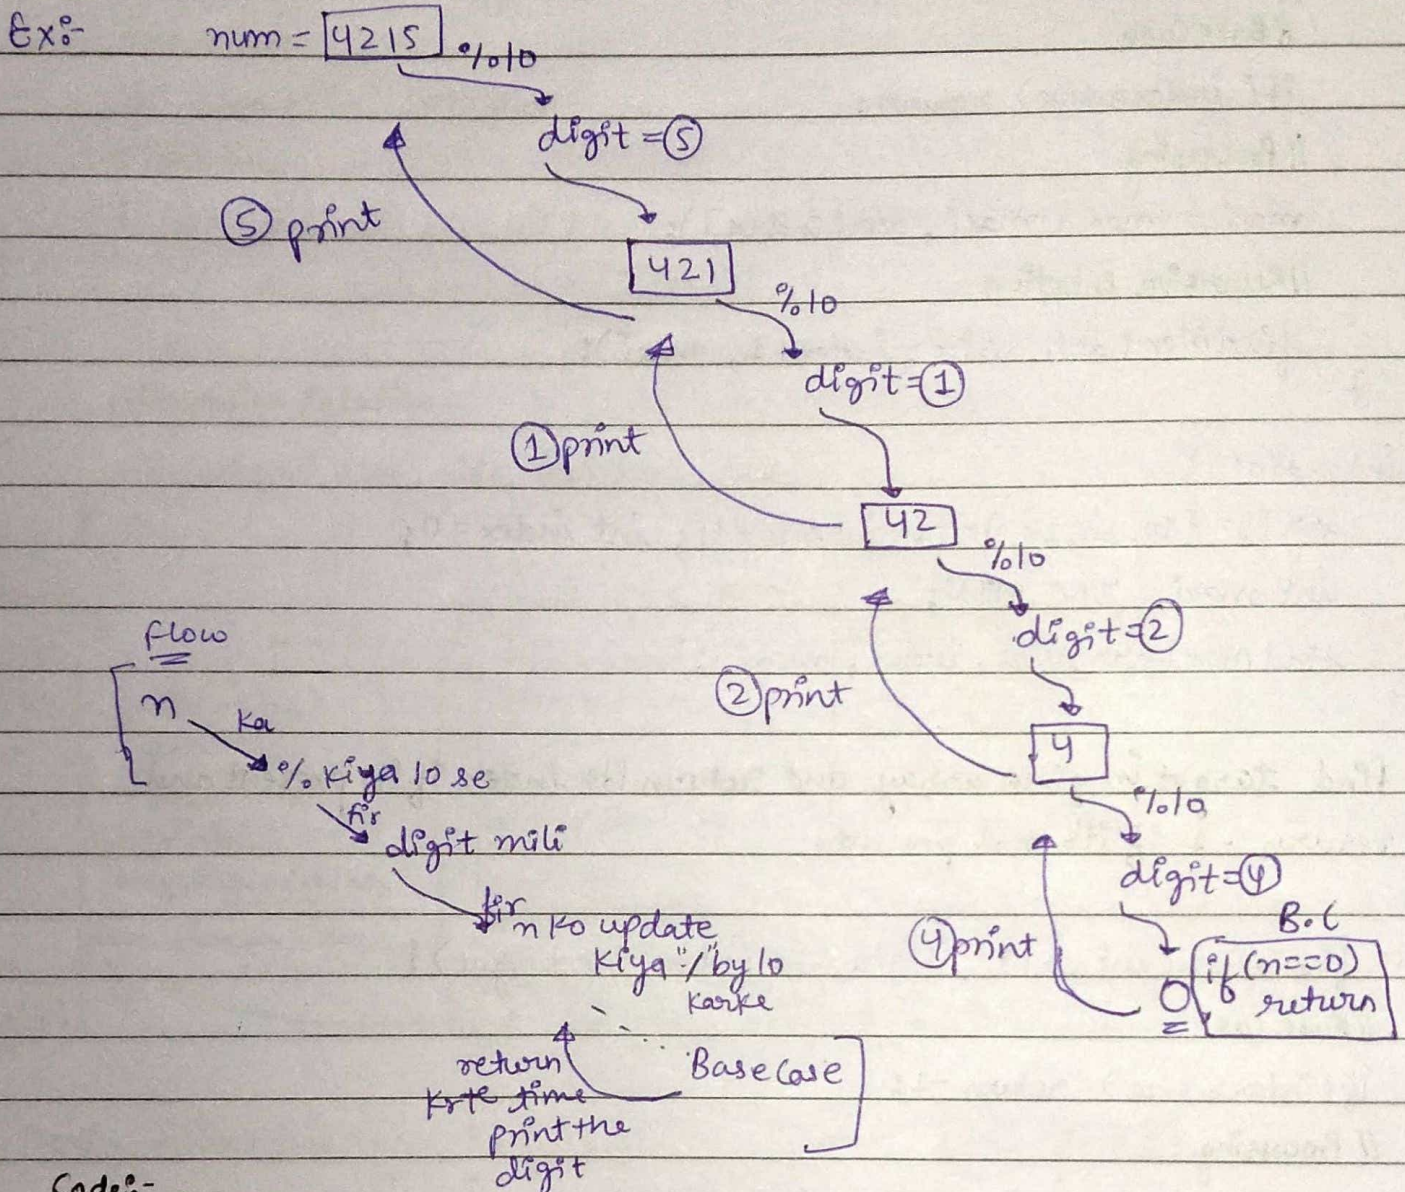 Ex:-
num = 4215 %10
digit = 5
5 print
421
%10
digit = 1
1 print
42
%10
digit = 2
2 print
4
%10
digit = 4
4 print
0
B.C
if (n==0)
return
flow
n
ka
% kiya 10 se
fir
digit mili
fir
n ko update
kiya "/" by 10
karke
Base Case
return
krte time
print the
digit
Code:-